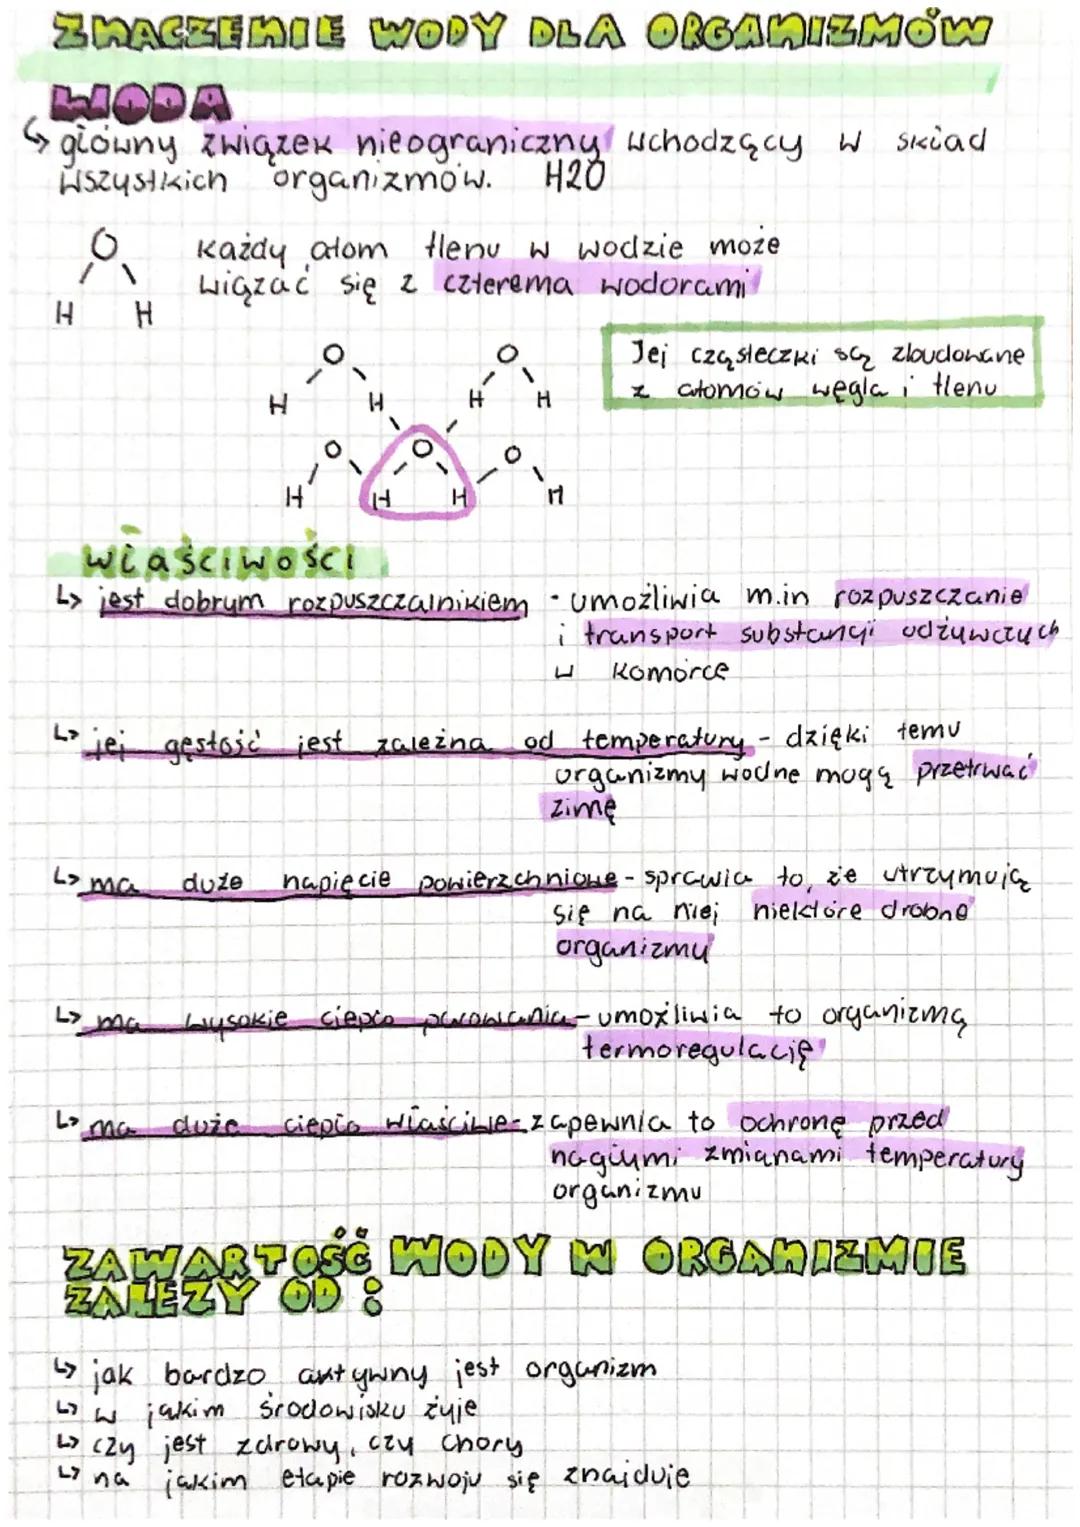 ZNACZENIE WODY DLA ORGANIZMÓW
WODA
↳ główny związek nieograniczny wchodzący w skład
wszystkich organizmów. H2O
O
H H
każdy atom tlenu w wodzie może
wiązać się z czterema wodorami
O O
H H H H
O O O
H H H H
Jej cząsteczki są zbudowane
z atomów węgla i tlenu
właściwości
↳ jest dobrym rozpuszczalnikiem - umożliwia m.in rozpuszczanie
i transport substancji odżywczych
w komórce
↳ jej gęstość jest zależna od temperatury - dzięki temu
organizmy wodne mogą przetrwać
zimę
↳ ma duże napięcie powierzchniowe - sprawia to, że utrzymują
się na niej niektóre drobne
organizmy
↳ ma wysokie ciepło parowania - umożliwia to organizmą
termoregulację
↳ ma duże ciepło właściwe - zapewnia to ochronę przed
nagłymi zmianami temperatury
organizmu
ZAWARTOŚĆ WODY W ORGANIZMIE
ZALEŻY OD :
↳ jak bardzo aktywny jest organizm
↳ w jakim środowisku żyje
↳ czy jest zdrowy, czy chory
↳ na jakim etapie rozwoju się znajduje